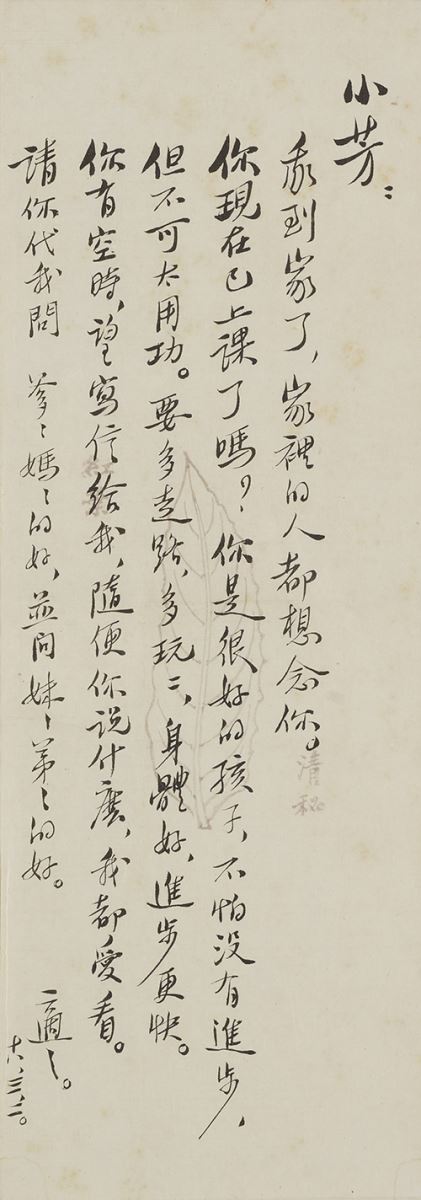 小芳：
我到家了，家裡的人都想念你。
你現在已上課了嗎？你是很好的孩子，不怕没有進步，
但不可太用功。要多走路，多玩二，身體好，進步更快。
你有空時，望寫信給我，隨便你説什麽，我都愛看。
請你代我問　爹〻媽〻的好，並问妹〻弟〻的好。
適〻。
十八，三，二。
清祕